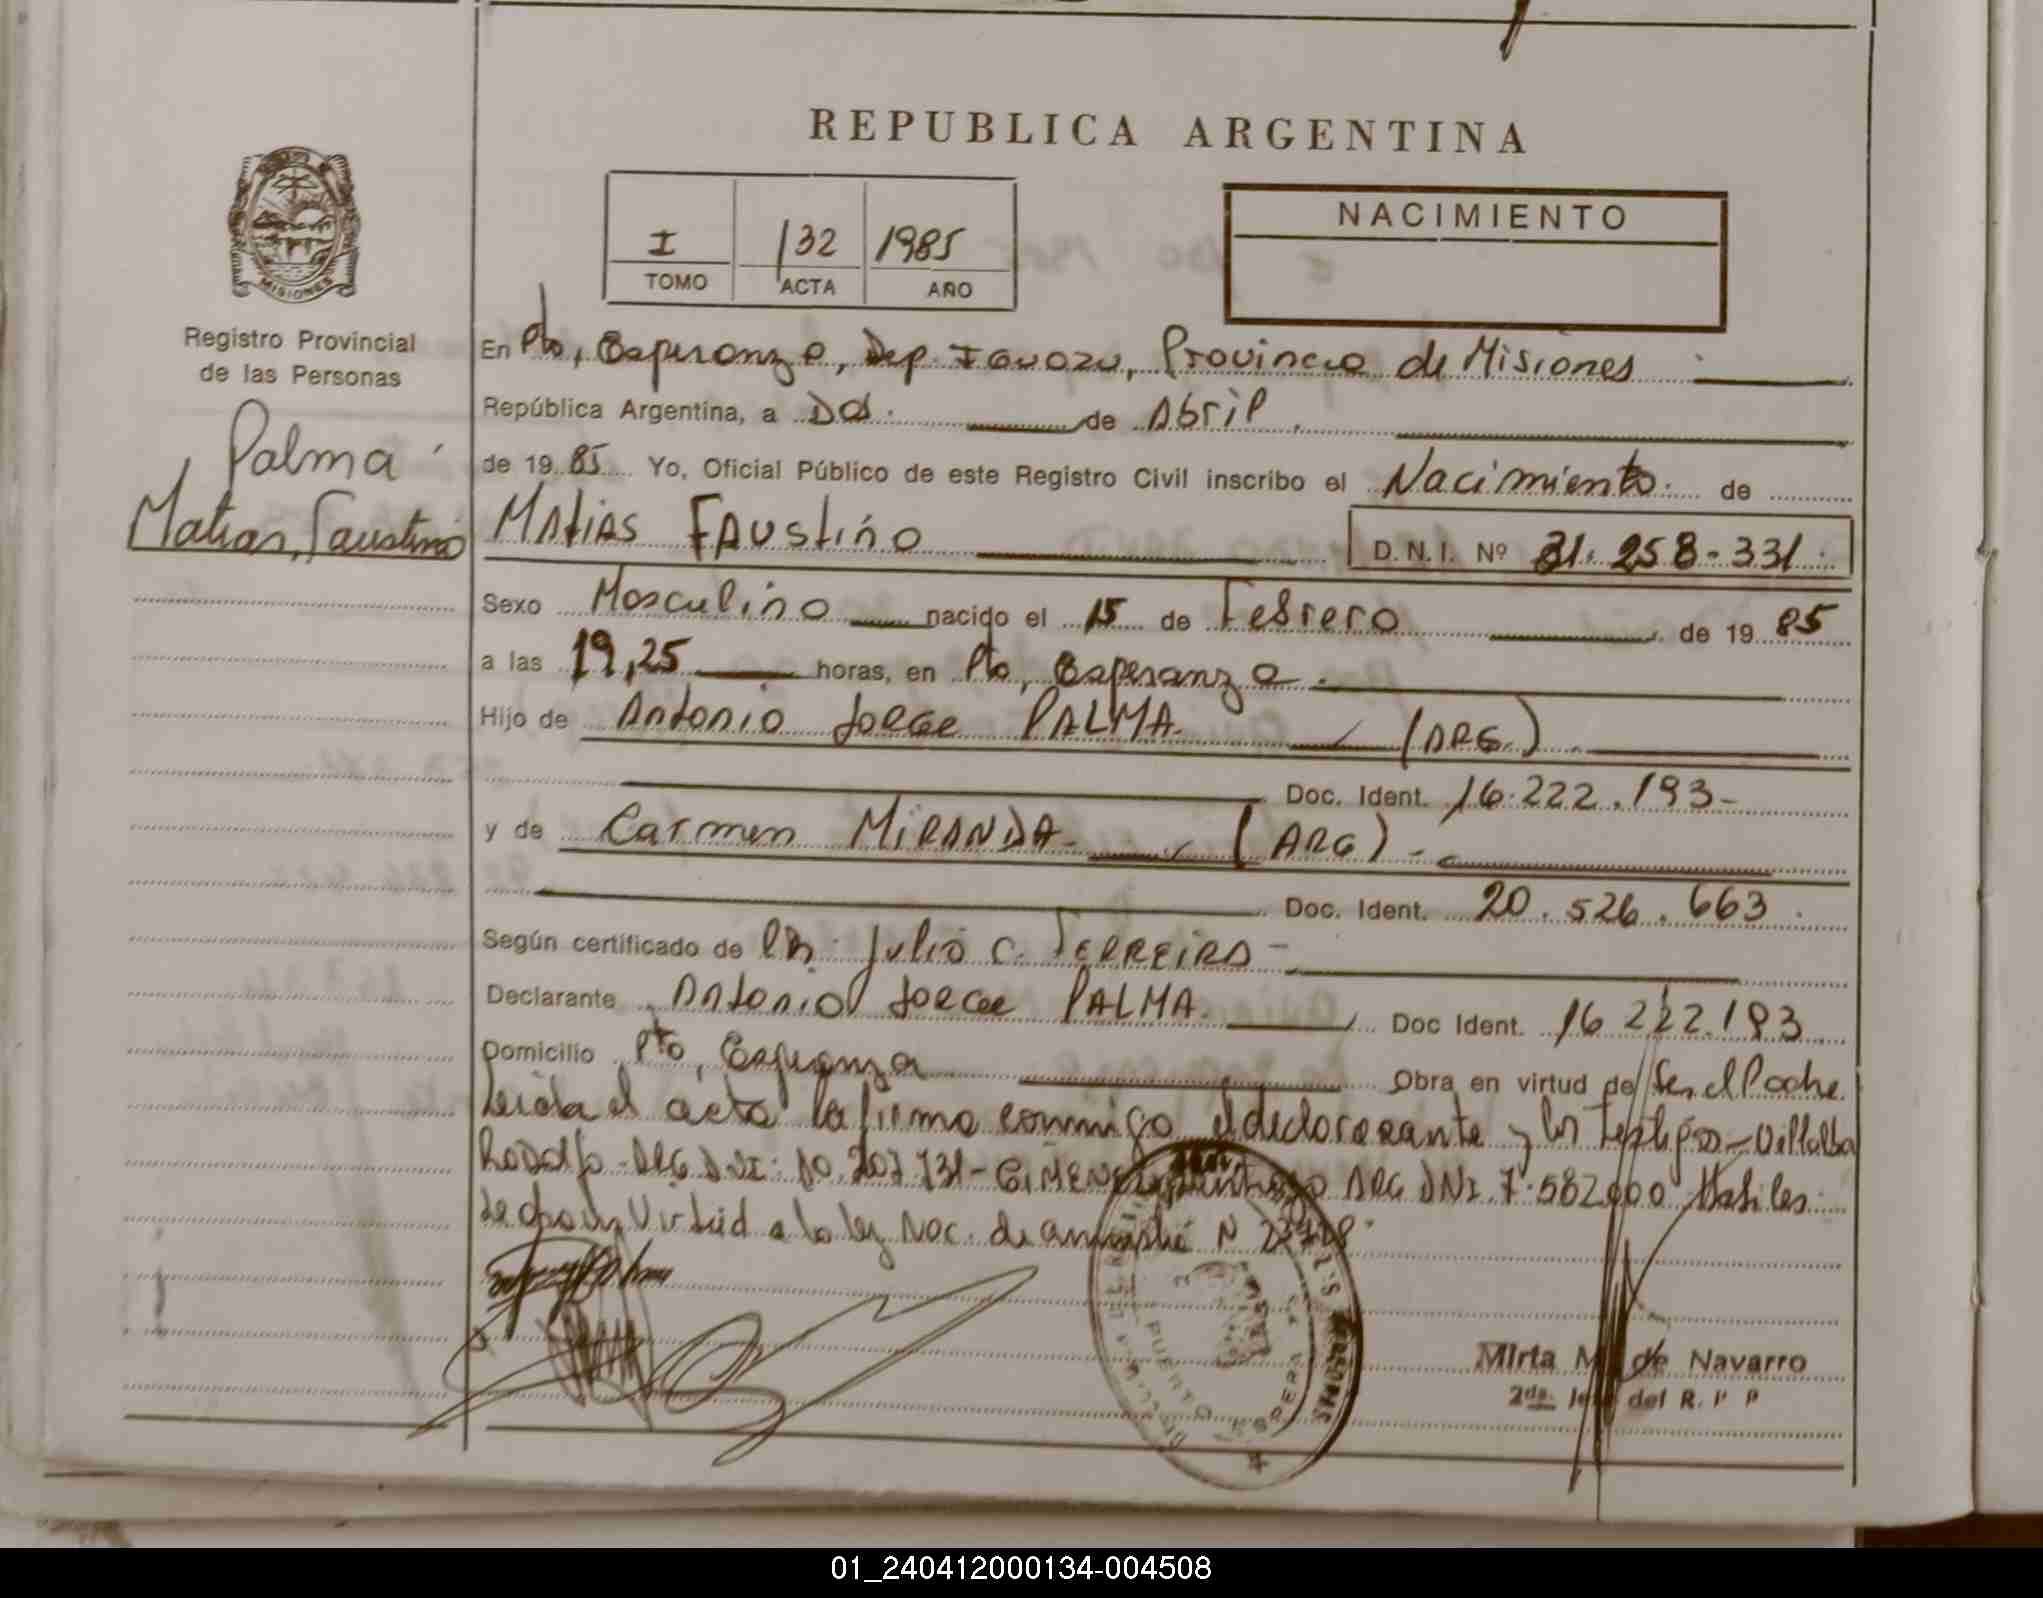 REPUBLICA ARGENTINA
I 132 1985
TOMO ACTA AÑO
NACIMIENTO
MISIONES
Registro Provincial
de las Personas
Palma
Matias, Faustino
En Pto, Esperanza, Dep. Iguazu, Provincia de Misiones
República Argentina, a Dos de Abril
de 1985 Yo, Oficial Público de este Registro Civil inscribo el Nacimiento de
MATIAS FAUSTINO D.N.I. Nº 31.258-331
Sexo Masculino nacido el 15 de Febrero de 1985
a las 19,25 horas, en Pto, Esperanza.
Hijo de Antonio Jorge PALMA (ARG.)
Doc. Ident. 16.222.193-
y de Carmen MIRANDA- (ARG)-
Doc. Ident. 20.526.663
Según certificado de DR. Julio C. FERREIRA-
Declarante Antonio Jorge PALMA. Doc Ident. 16 222.193
Domicilio Pto, Esperanza Obra en virtud de Ser el Padre.
Leida el acta la firma conmigo el declarante y los Testigos-Villalba
Rodolfo-ARG DNI: 10.207.731- ARG DNI 7.582.000 Habiles
Virtud a la ley Nac. de amnistia N
PUERTO ESPERANZA
Mirta M. de Navarro
2da. Jefe del R. P P
01_240412000134-004508